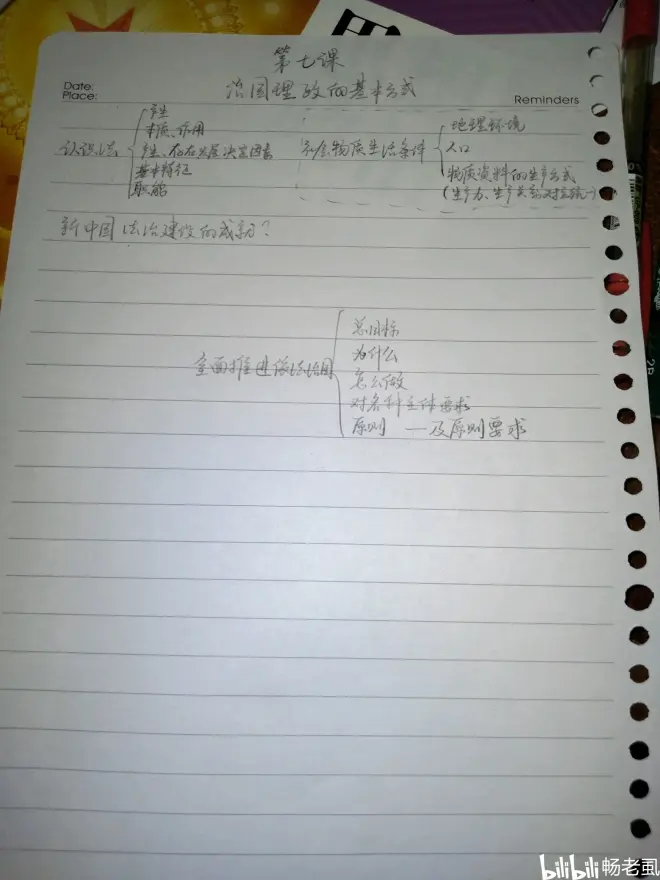 第七课
治国理政的基本方式
Date:
Place:
Reminders
认识法
产生
本质、作用
产生、存在发展决定因素
基本特征
职能
社会物质生活条件
地理环境
人口
物质资料的生产方式
(生产力、生产关系对立统一)
新中国法治建设的成就?
全面推进依法治国
总目标
为什么
怎么做
对各种主体要求
原则 — 及原则要求
bilibili 畅老虱